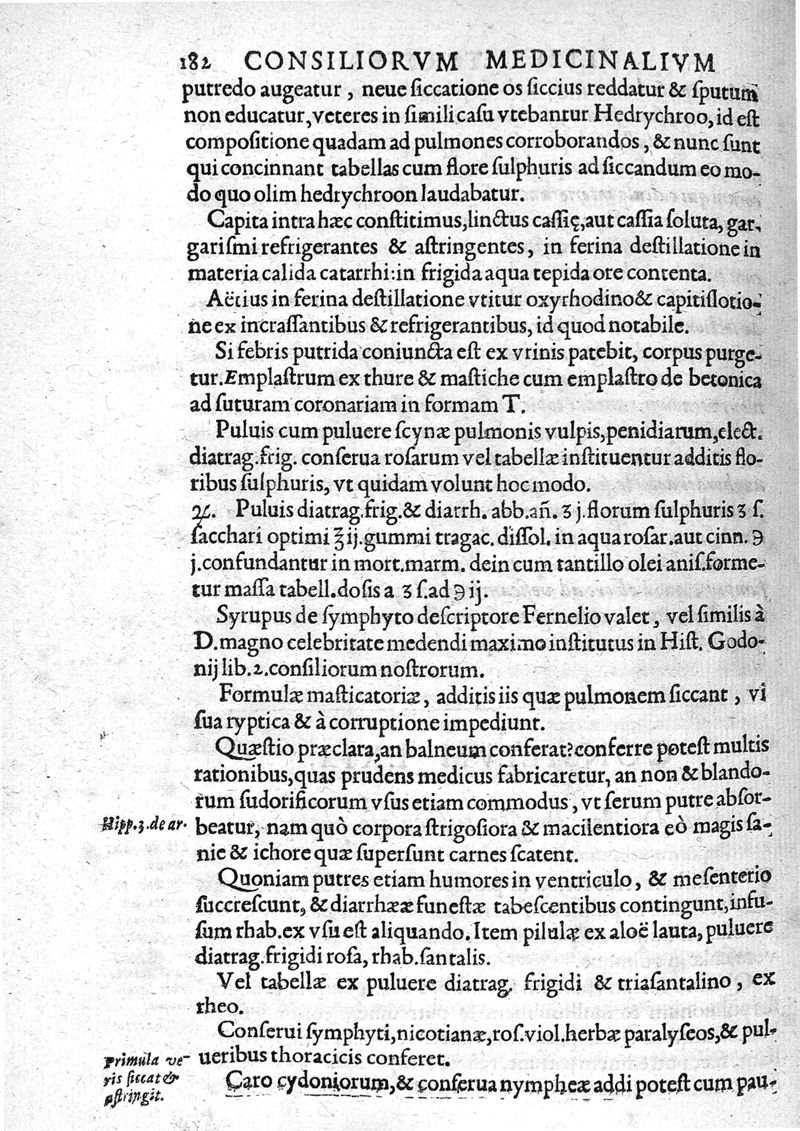 182 CONSILIORVM MEDICINALIVM
putredo augeatur, neue ſiccatione os ſiccius reddatur & ſputum
non educatur, veteres in ſimili caſu vtebantur Hedrychroo, id eſt
compoſitione quadam ad pulmones corroborandos, & nunc ſunt
qui concinnant tabellas cum flore ſulphuris ad ſiccandum eo mo-
do quo olim hedrychroon laudabatur.
Capita intra hæc conſtitimus, linctus caſſię, aut caſſia ſoluta, gar-
gariſmi refrigerantes & aſtringentes, in ferina deſtillatione in
materia calida catarrhi: in frigida aqua tepida ore contenta.
Aëtius in ferina deſtillatione vtitur oxyrhodino & capitis lotio-
ne ex incraſſantibus & refrigerantibus, id quod notabile.
Si febris putrida coniuncta eſt ex vrinis patebit, corpus purge-
tur. Emplaſtrum ex thure & maſtiche cum emplaſtro de betonica
ad ſuturam coronariam in formam T.
Puluis cum puluere ſcynæ pulmonis vulpis, penidiarum, elect.
diatrag. frig. conſerua roſarum vel tabellæ inſtituentur additis flo-
ribus ſulphuris, vt quidam volunt hoc modo.
♃. Puluis diatrag. frig. & diarrh. abb. añ. ʒ j. florum ſulphuris ʒ ſ.
ſacchari optimi ℥ ij. gummi tragac. diſſol. in aqua roſar. aut cinn. ℈
j. confundantur in mort. marm. dein cum tantillo olei aniſ. forme-
tur maſſa tabell. doſis a ʒ ſ. ad ℈ ij.
Syrupus de ſymphyto deſcriptore Fernelio valet, vel ſimilis à
D. magno celebritate medendi maximo inſtitutus in Hiſt. Godo-
nij lib. 2. conſiliorum noſtrorum.
Formulæ maſticatoriæ, additis iis quæ pulmonem ſiccant, vi
ſua ryptica & à corruptione impediunt.
Quæſtio præclara, an balneum conferat? conferre poteſt multis
rationibus, quas prudens medicus fabricaretur, an non & blando-
rum ſudorificorum vſus etiam commodus, vt ſerum putre abſor-
Hipp. 3. de ar. beatur, nam quò corpora ſtrigoſiora & macilentiora eò magis ſa-
nie & ichore quæ ſuperſunt carnes ſcatent.
Quoniam putres etiam humores in ventriculo, & meſenterio
ſuccreſcunt, & diarrhææ funeſtæ tabeſcentibus contingunt, infu-
ſum rhab. ex vſu eſt aliquando. Item pilulæ ex aloë lauta, puluere
diatrag. frigidi roſa, rhab. ſantalis.
Vel tabellæ ex puluere diatrag. frigidi & triaſantalino, ex
rheo.
Conſerui ſymphyti, nicotianæ, roſ. viol. herbæ paralyſeos, & pul-
Primula ve- ueribus thoracicis conferet.
ris ſiccat & Caro cydoniorum, & conſerua nympheæ addi poteſt cum pau-
aſtringit.